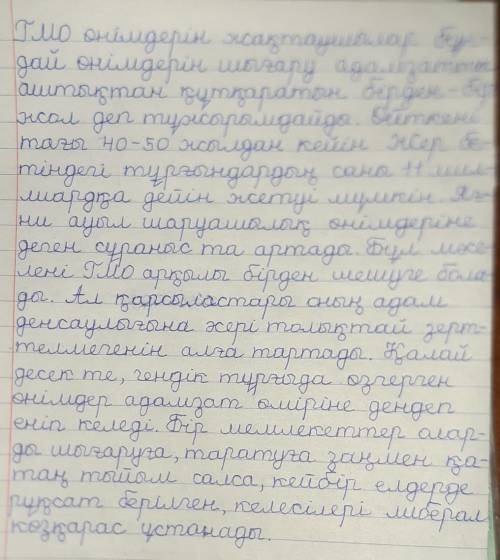 ГМО өнімдерін жақтаушылар бұн-
дай өнімдерін шығару адамзатты
аштықтан құтқаратын бірден-бір
жол деп тұжырымдайды. Өйткені
тағы 40-50 жылдан кейін Жер бе-
тіндегі тұрғындардың саны 11 мил-
лиардқа дейін жетуі мүмкін. Яғ-
ни ауыл шаруашылық өнімдеріне
деген сұраныс та артады. Бұл мәсе-
лені ГМО арқылы бірден шешуге бола-
ды. Ал қарсыластары оның адам
денсаулығына әсері толықтай зерт-
телмегенін алға тартады. Қалай
десек те, гендік тұрғыда өзгерген
өнімдер адамзат өміріне дендеп
еніп келеді. Бір мемлекеттер олар-
ды шығаруға, таратуға заңмен қа-
таң тыйым салса, кейбір елдерде
рұқсат берілген, келесілері либерал
көзқарас ұстанады.